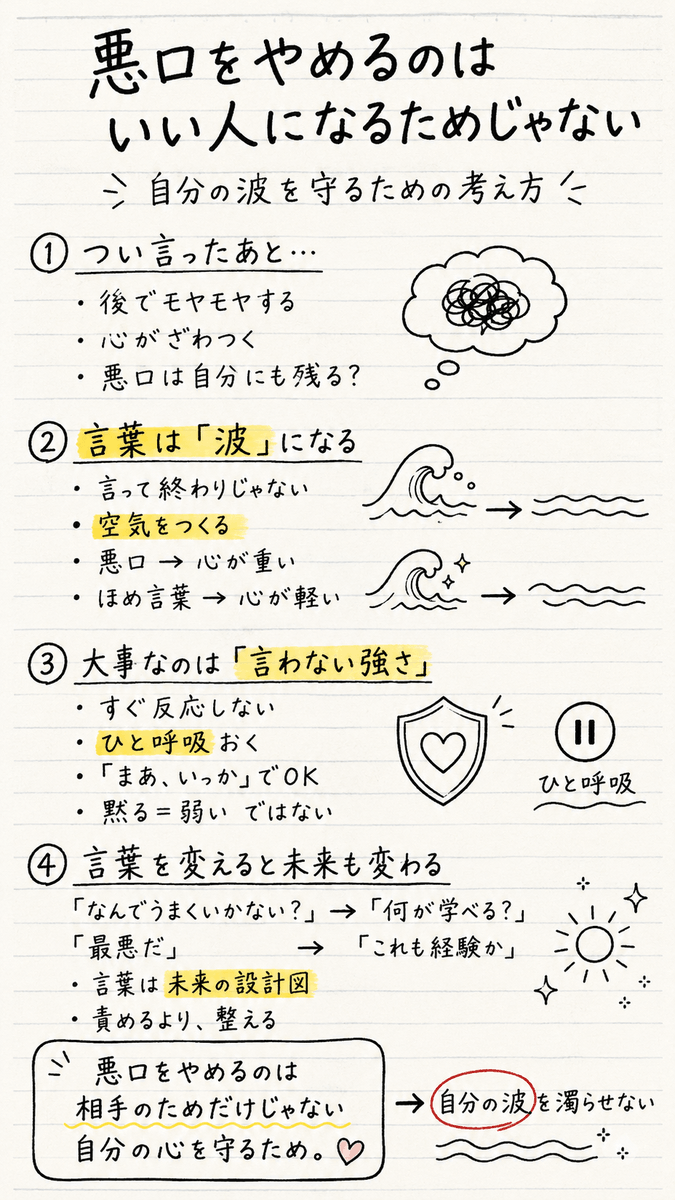 悪口をやめるのは
いい人になるためじゃない
自分の波を守るための考え方
① つい言ったあと…
・後でモヤモヤする
・心がざわつく
・悪口は自分にも残る?
② 言葉は「波」になる
・言って終わりじゃない
・空気をつくる
・悪口 → 心が重い
・ほめ言葉 → 心が軽い
→
→
③ 大事なのは「言わない強さ」
・すぐ反応しない
・ひと呼吸おく
・「まあ、いっか」でOK
・黙る=弱い ではない
ひと呼吸
④ 言葉を変えると未来も変わる
「なんでうまくいかない?」→「何が学べる?」
「最悪だ」 → 「これも経験か」
・言葉は未来の設計図
・責めるより、整える
悪口をやめるのは
相手のためだけじゃない
自分の心を守るため。
→ 自分の波を濁らせない